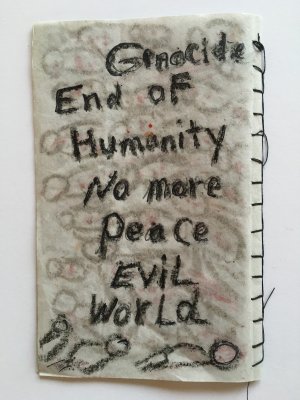 Genocide
End of
Humanity
No more
Peace
Evil
World